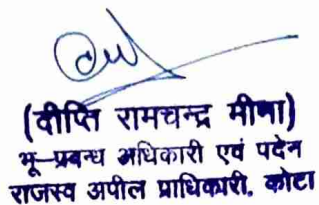 (दीप्ति रामचन्द्र मीणा)
भू–प्रबन्ध अधिकारी एवं पदेन
राजस्व अपील प्राधिकारी, कोटा